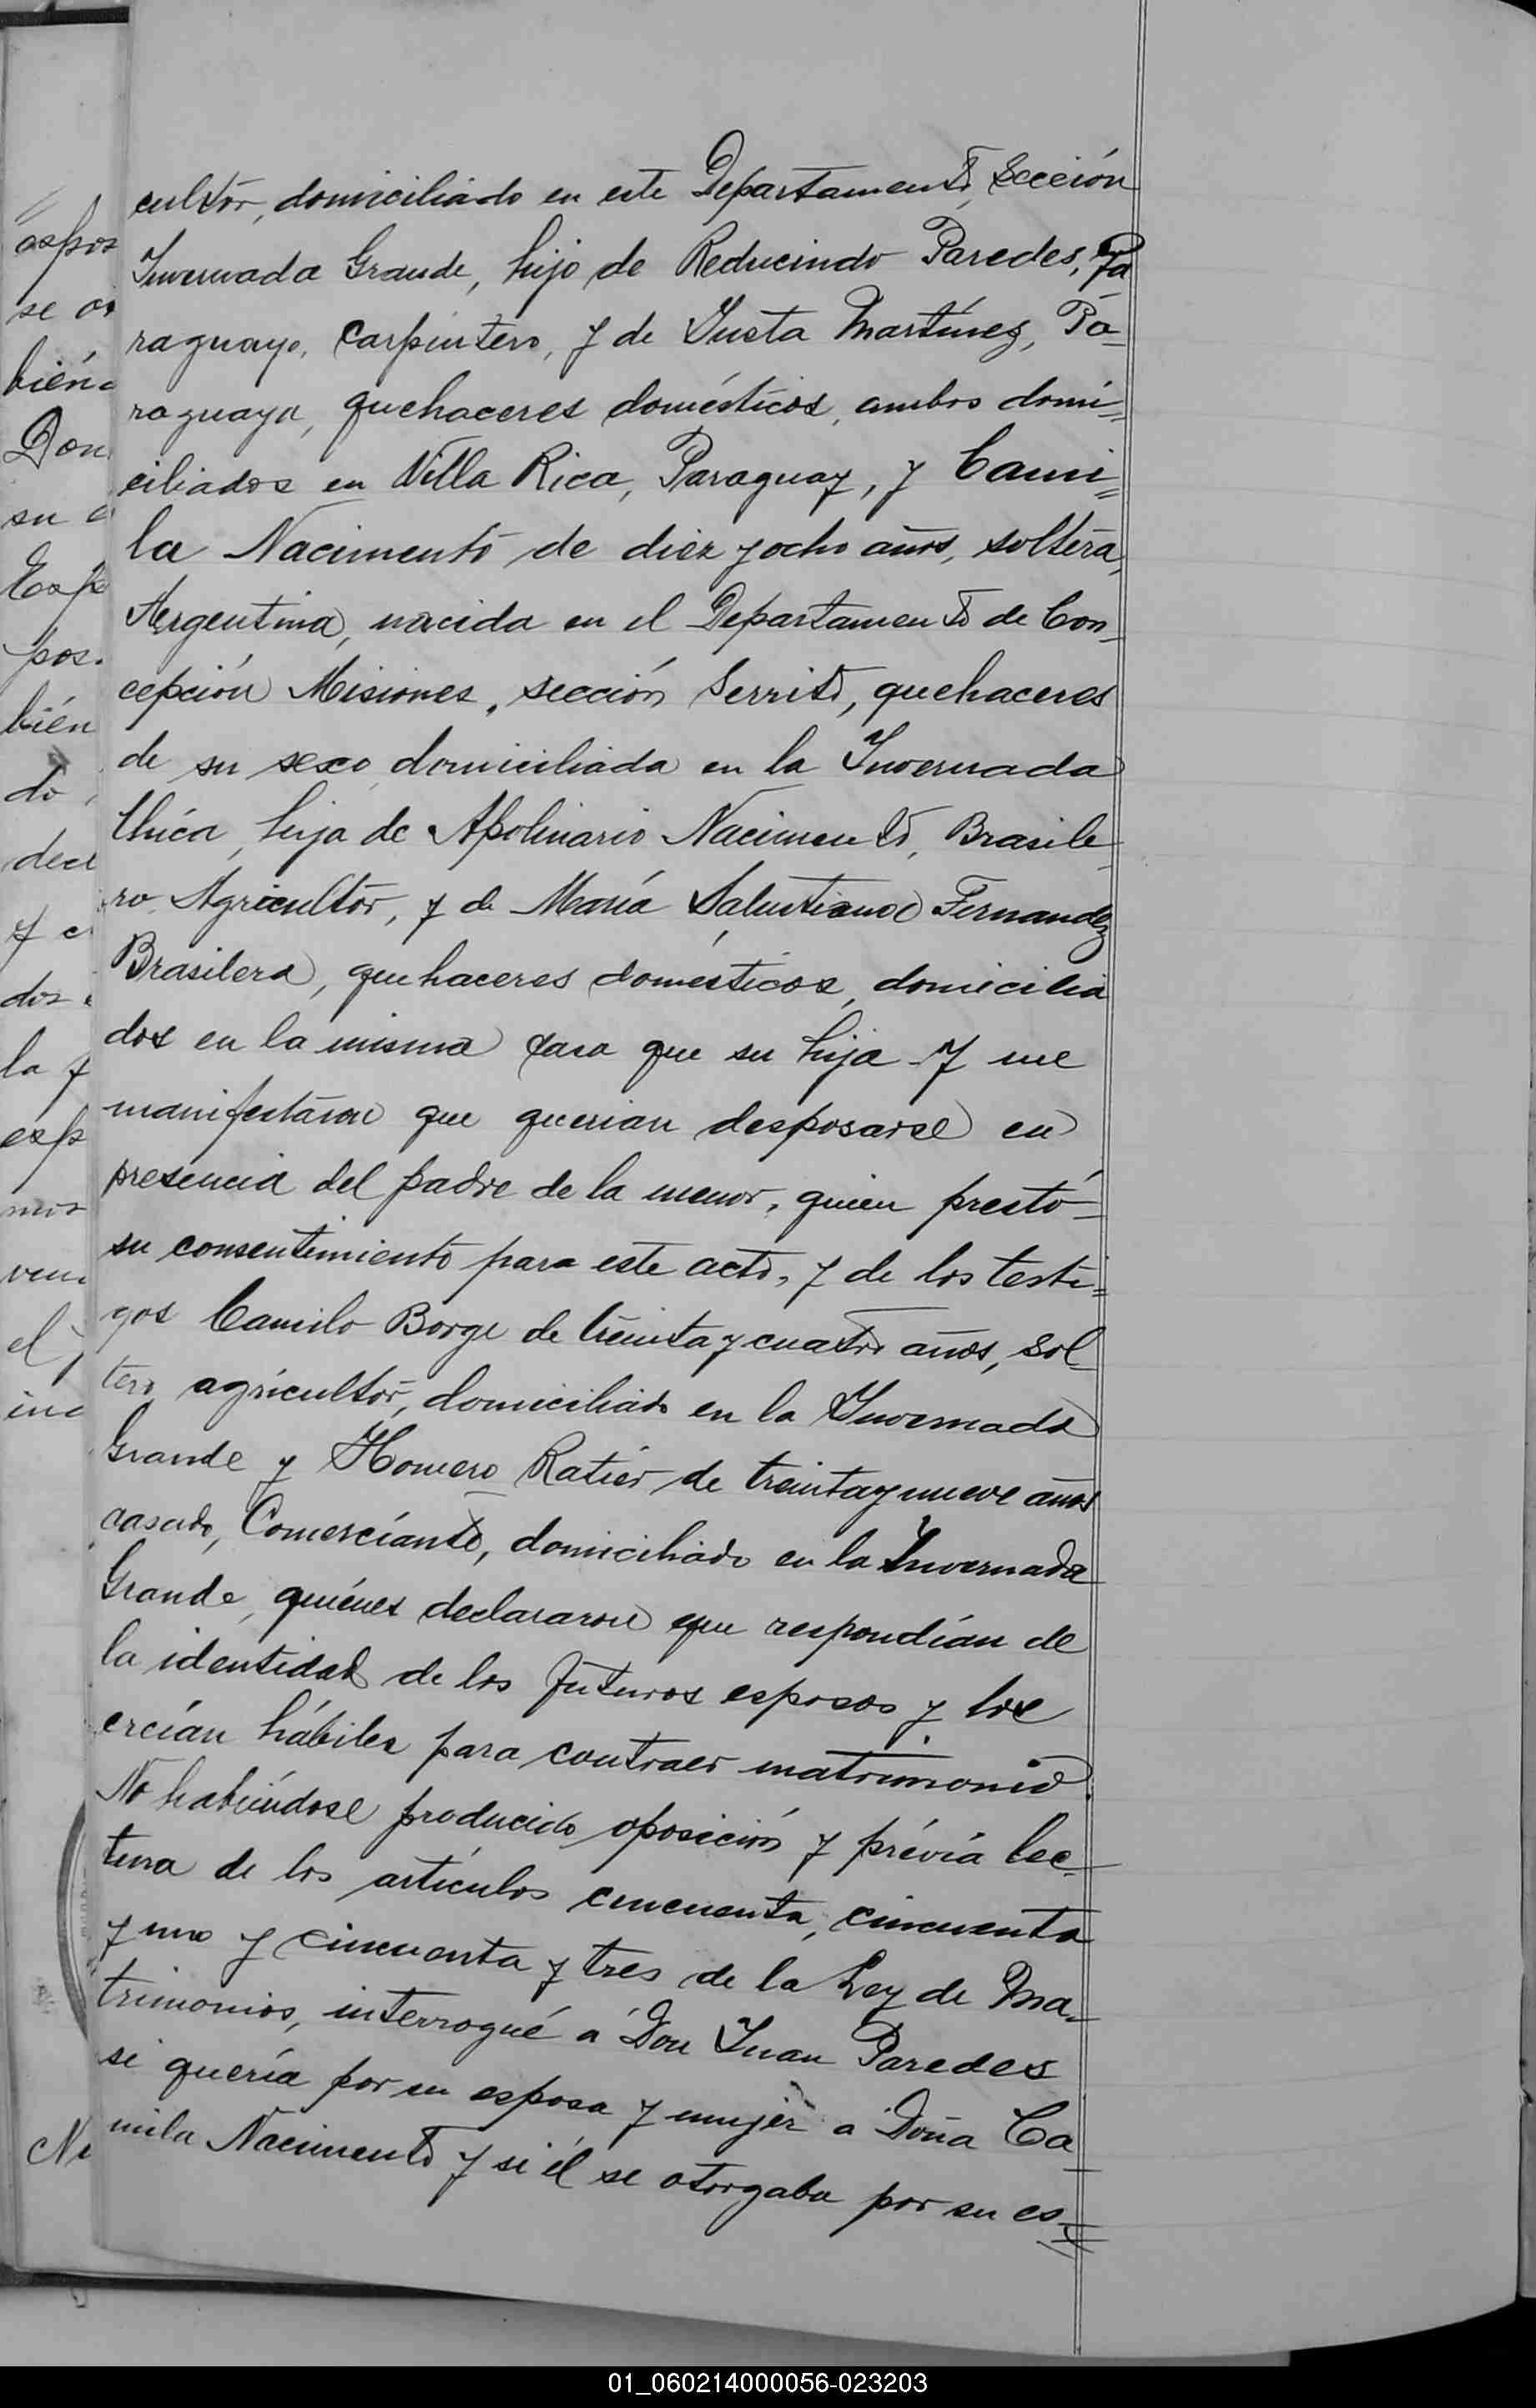 cultor, domiciliado en este Departamento, Sección
Invernada Grande, hijo de Reducindo Paredes, Pa
raguayo, Carpintero, y de Justa Martínez, Pa-
raguaya, quehaceres domésticos, ambos domi=
ciliados en Villa Rica, Paraguay, y Cami=
la Nacimento de diez y ocho años, soltera,
Argentina, nacida en el Departamento de Con-
cepción Misiones, sección Serrito, quehaceres
de su sexo domiciliada en la Invernada
Chica, hija de Apolinario Nacimento, Brasile-
ro Agricultor, y de María Salustiana Fernandez
Brasilera, quehaceres domésticos, domicilia
dos en la misma casa que su hija. Y me
manifestaron que querian desposarse en
presencia del padre de la menor, quien prestó-
su consentimiento para este acto, y de los testi=
gos Camilo Borge de treinta y cuatro años, sol-
tero agricultor, domiciliado en la Invernada
Grande y Homero Ratier de treinta y nueve años
casado, Comerciante, domiciliado en la Invernada
Grande, quiénes declararon que respondían de
la identidad de los futuros esposos y los
creían hábiles para contraer matrimonio.
No habiéndose producido oposición y prévia lec-
tura de los artículos cincuenta, cincuenta
y uno y cincuenta y tres de la Ley de Ma-
trimonios, interrogué á Don Juan Paredes
si quería por su esposa y mujer á Doña Ca-
mila Nacimento y si él se otorgaba por su es=
01_060214000056-023203